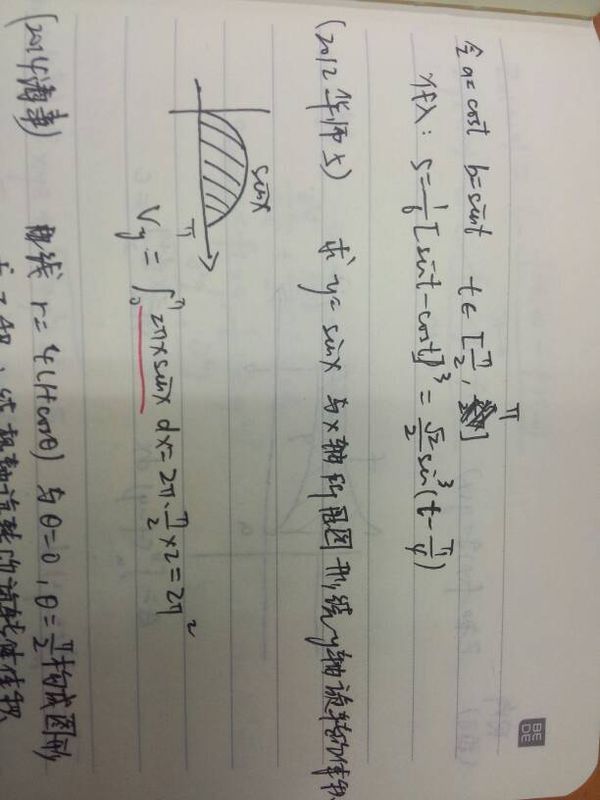 令 a=cost b=sint t∈[π/2, π]
则 : S=1/6[sint-cost]³=√2/2 sin³(t-π/4)
(2012华师大) 求 y=sinx 与x轴所围图形,绕y轴旋转的体积
sinx
π
V_y=∫₀^π 2πx sinx dx=2π·π/2×2=2π²
(2014清华) 曲线 r=4(1+cosθ) 与θ=0,θ=π/2构成图形
绕极轴旋转的旋转体体积
BE
DE